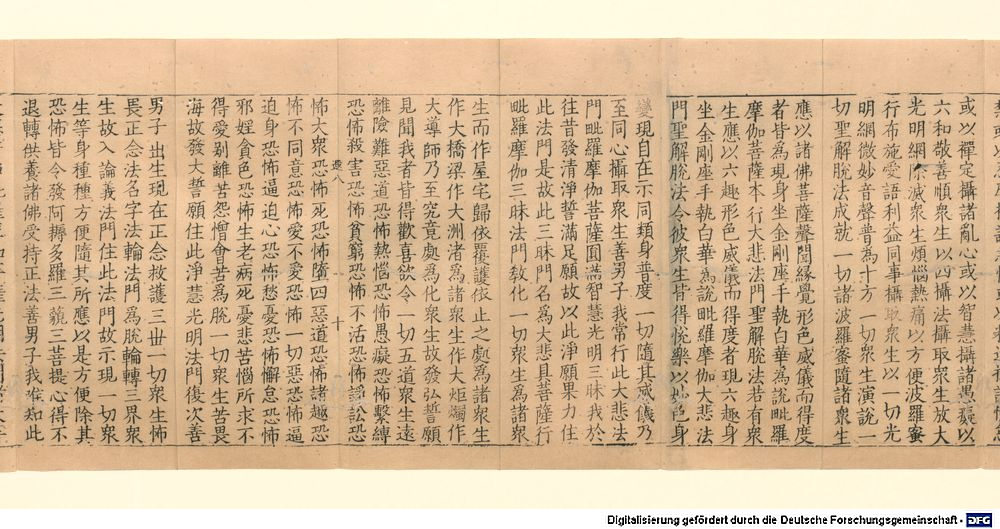 或以禪定攝諸亂心或以智慧攝諸愚癡以
六和敬善順衆生以四攝法攝取衆生放大
光明網除滅衆生煩惱熱痛以方便波羅蜜
行布施愛語利益同事攝取衆生以一切光
明網微妙音聲普為十方一切衆生演說一
切聖解脫法令彼衆生皆得悅樂以妙色身
應以諸佛菩薩聲聞緣覺形色威儀而得度
者皆為現身坐金剛座手執白華為說毗羅
摩伽菩薩本行大悲法門聖解脫法若有衆
生應以六趣形色威儀而得度者現六趣身
坐金剛座手執白華為說毗羅摩伽大悲法
門聖解脫法令彼衆生皆得悅樂以妙色身
變現自在示同類身普度一切隨其威儀乃
至同心攝取衆生善男子我常行此大悲法
門毗羅摩伽菩薩圓滿智慧光明三昧我於
往昔發清淨誓滿足願故以此淨願果力住
此法門是故此三昧門名為大悲具菩薩行
毗羅摩伽三昧法門教化一切衆生為諸衆
生而作屋宅歸依覆護依止之處為諸衆生
作大橋梁作大洲渚為諸衆生作大炬爥作
大導師乃至究竟處為化衆生故發弘誓願
見聞我者皆得歡喜欲令一切五道衆生遠
離險難惡道恐怖熱惱恐怖愚癡恐怖繫縛
恐怖殺害恐怖貧窮恐怖不活恐怖諍訟恐
㝹八 十
怖大衆恐怖死恐怖墮四惡道恐怖諸趣恐
怖不同意恐怖愛不愛恐怖一切惡恐怖逼
迫身恐怖逼迫心恐怖愁憂恐怖懈怠恐怖
邪婬貪色恐怖生老病死憂悲苦惱所求不
得愛別離苦怨憎會苦為脫一切衆生苦畏
海故發大誓願住此淨慧光明法門復次善
男子出生現在正念救護三世一切衆生怖
畏正念法名字法輪法門為脫輪轉三界衆
生故入論義法門住此法門故示現一切衆
生等身種種方便隨其所應以是方便除其
恐怖皆令發阿耨多羅三藐三菩提心得不
退轉供養諸佛受持正法善男子我唯知此
Digitalisierung gefördert durch die Deutsche Forschungsgemeinschaft - DFG